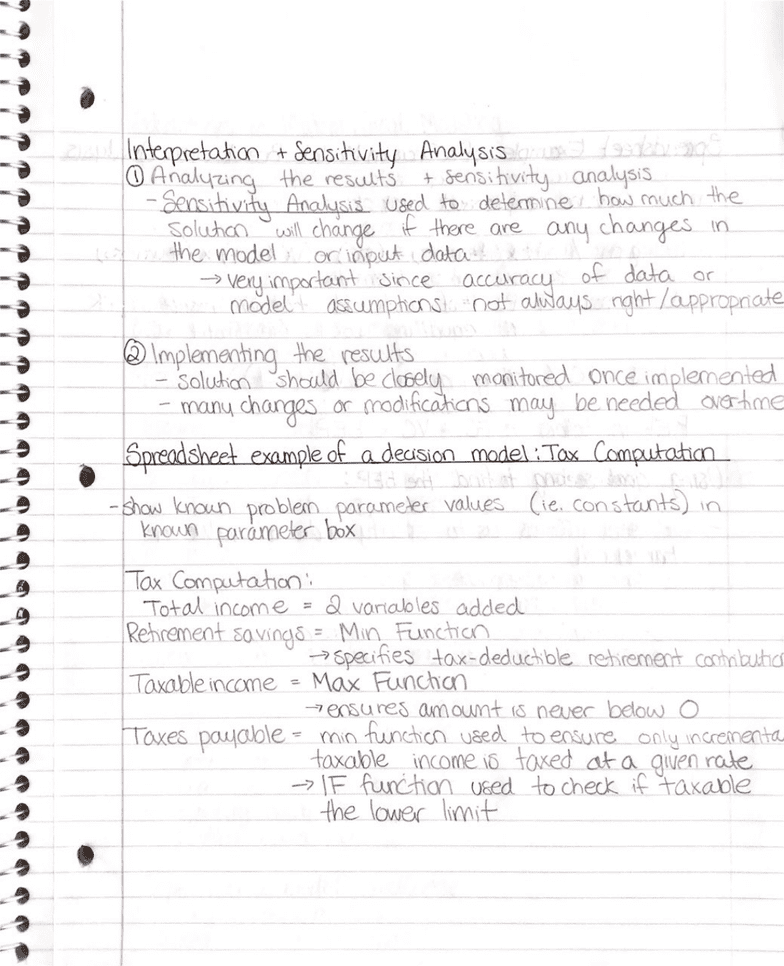 Interpretation + Sensitivity Analysis
① Analyzing the results + sensitivity analysis
- Sensitivity Analysis used to determine how much the
solution will change if there are any changes in
the model or input data
→ very important since accuracy of data or
model assumptions not always right/appropriate
② Implementing the results
- solution should be closely monitored once implemented
- many changes or modifications may be needed overtime
Spreadsheet example of a decision model: Tax Computation
- show known problem parameter values (ie. constants) in
known parameter box
Tax Computation:
Total income = 2 variables added
Retirement savings = Min Function
→ specifies tax-deductible retirement contributio
Taxable income = Max Function
→ ensures amount is never below 0
Taxes payable = min function used to ensure only incrementa
taxable income is taxed at a given rate
→ IF function used to check if taxable
the lower limit